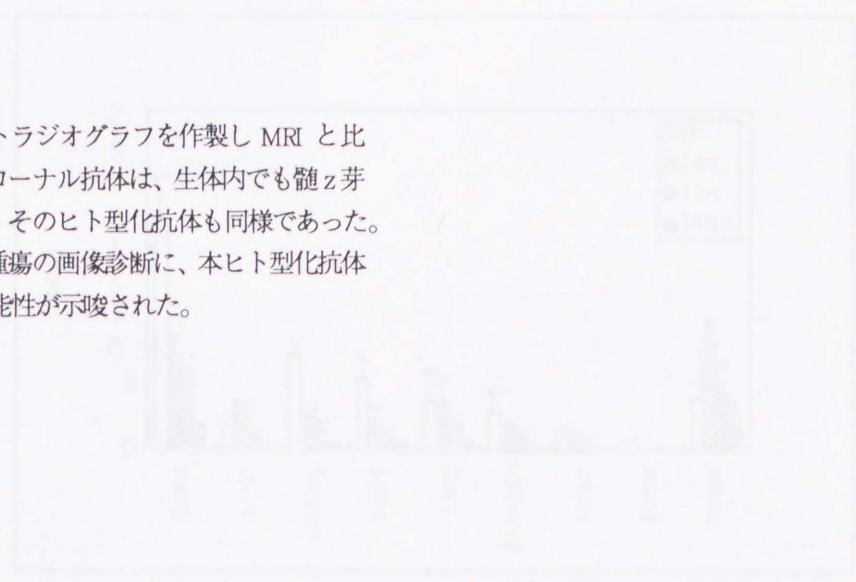 トラジオグラフを作製し MRI と比
ローナル抗体は、生体内でも髄 z 芽
、そのヒト型化抗体も同様であった。
腫瘍の画像診断に、本ヒト型化抗体
能性が示唆された。